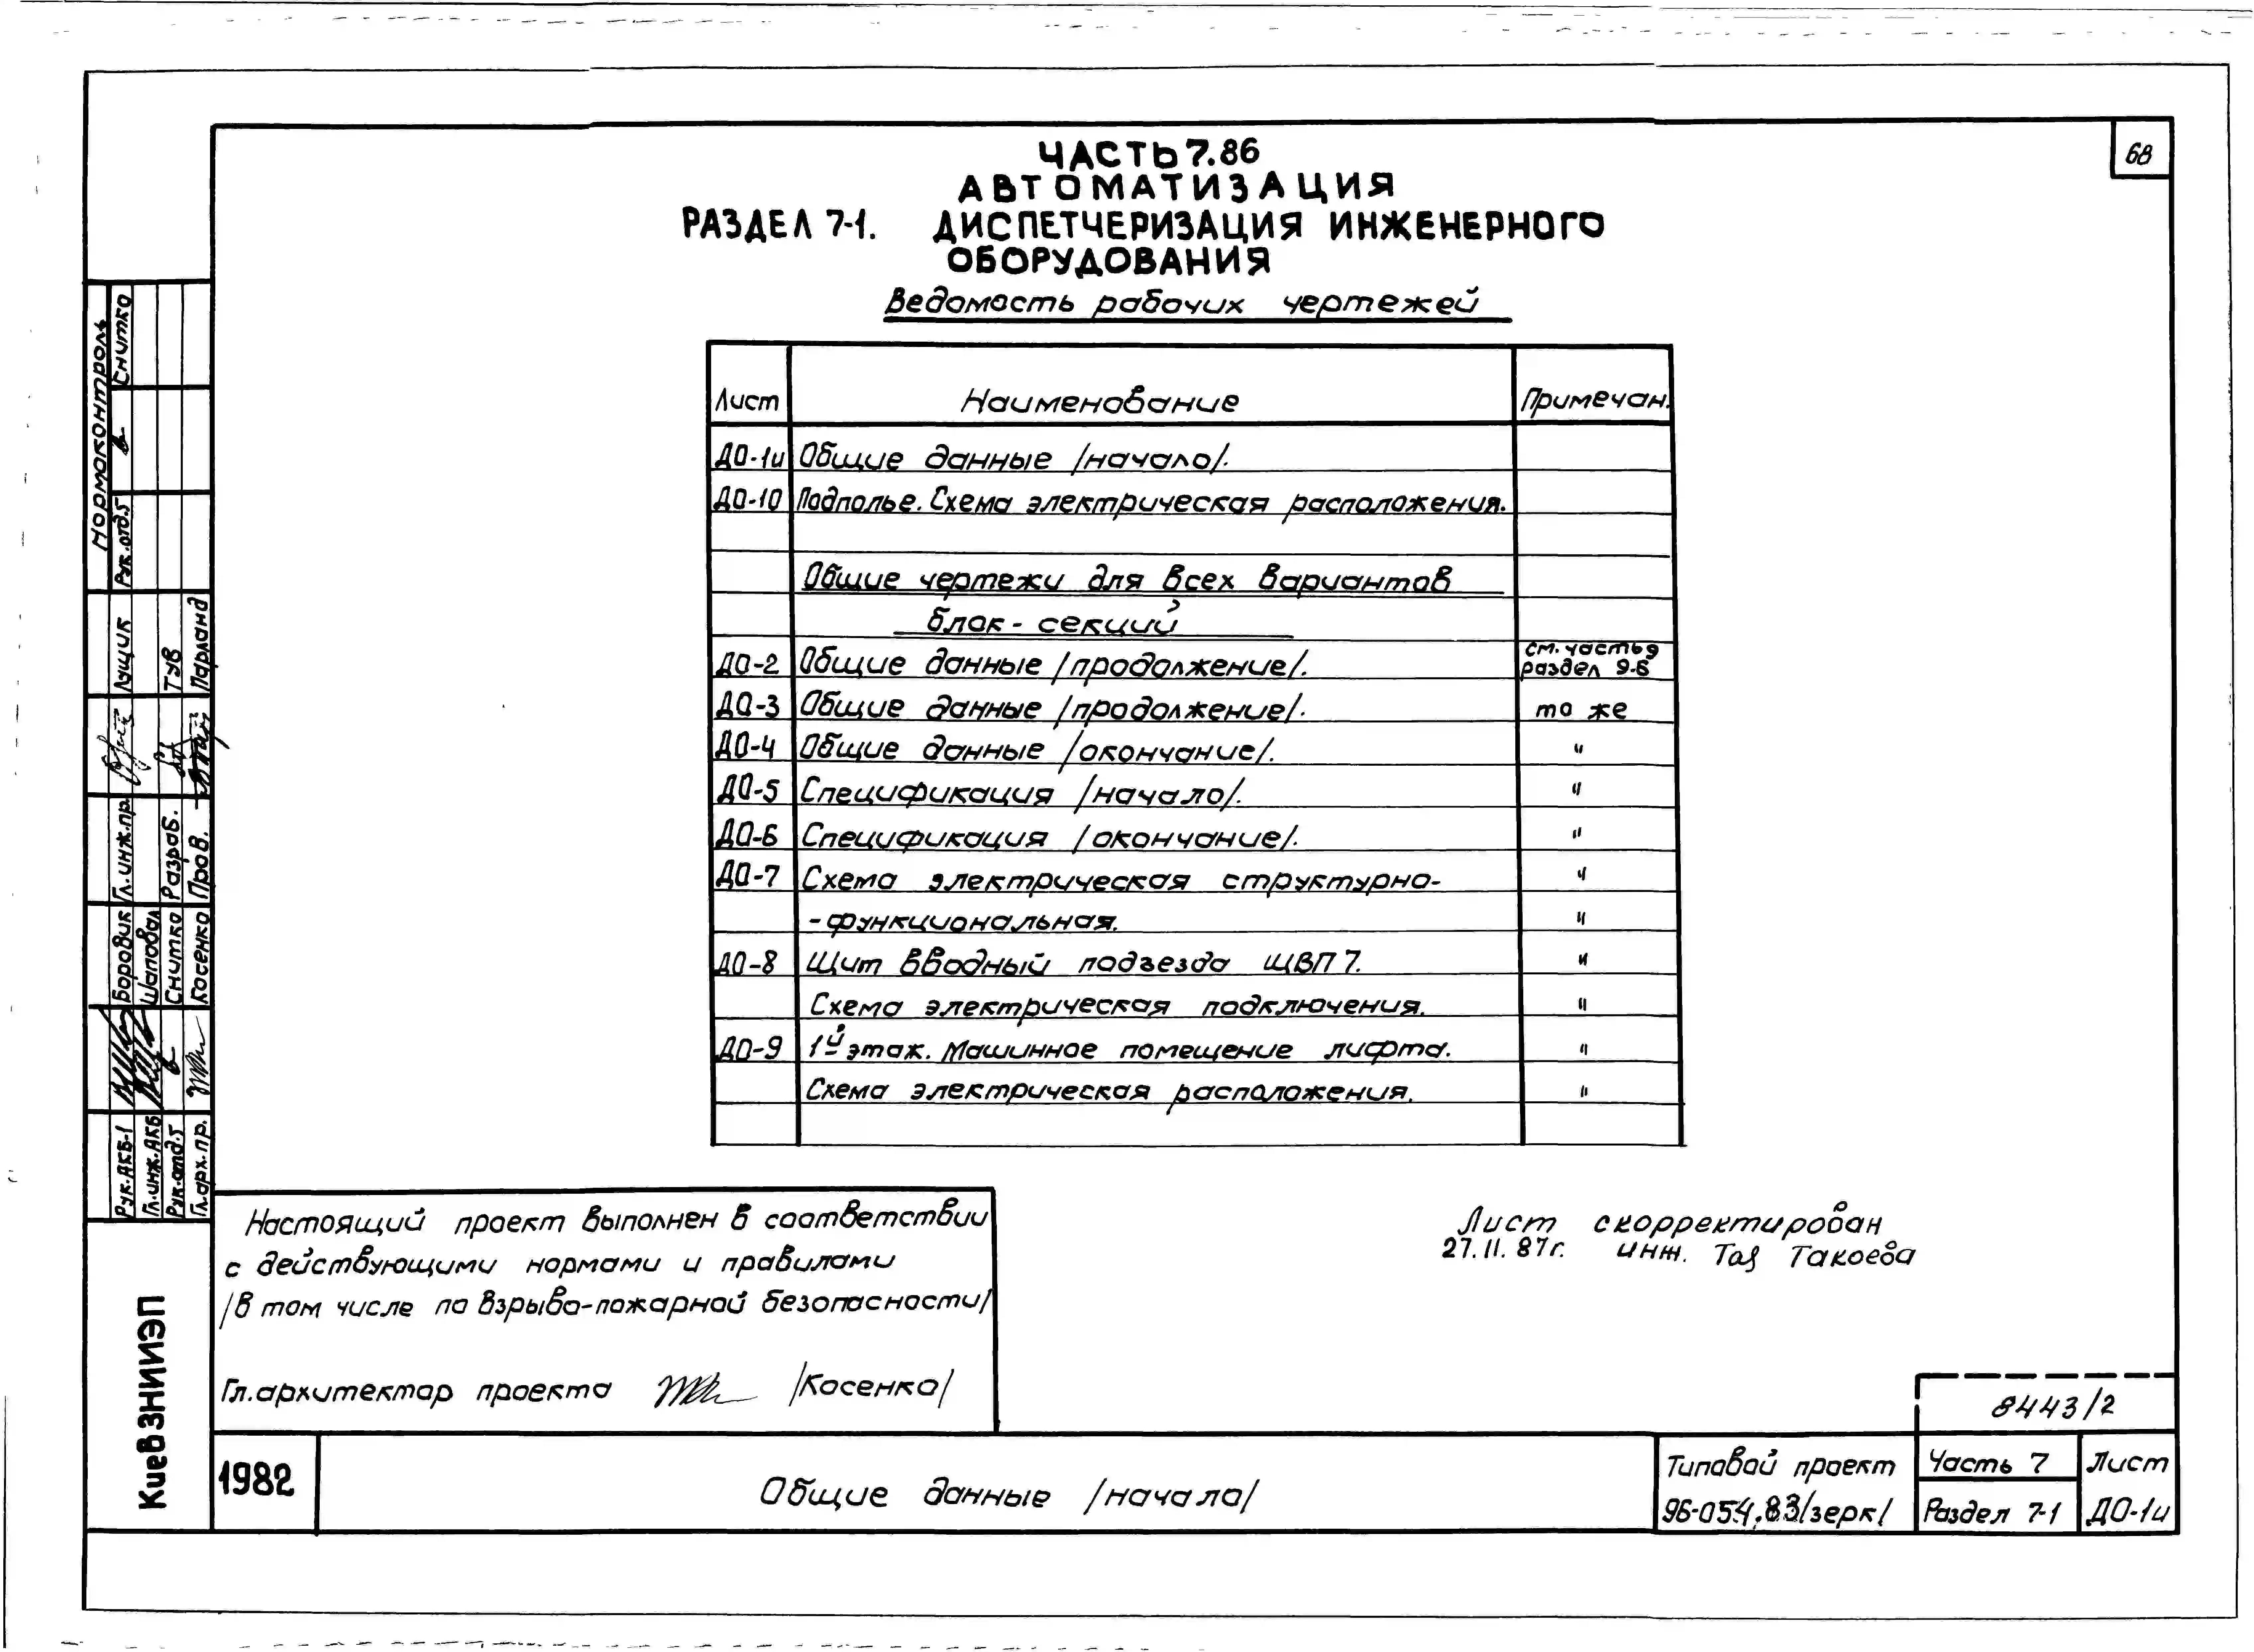 68
ЧАСТЬ 7.86
АВТОМАТИЗАЦИЯ
РАЗДЕЛ 7-1. ДИСПЕТЧЕРИЗАЦИЯ ИНЖЕНЕРНОГО
ОБОРУДОВАНИЯ
Ведомость рабочих чертежей
Лист Наименование Примечан.
ДО-1и Общие данные /начало/.
ДО-10 Подполье. Схема электрическая расположения.
Общие чертежи для всех вариантов
блок-секций
ДО-2 Общие данные /продолжение/. см. часть 9 раздел 9-6
ДО-3 Общие данные /продолжение/. то же
ДО-4 Общие данные /окончание/. "
ДО-5 Спецификация /начало/. "
ДО-6 Спецификация /окончание/. "
ДО-7 Схема электрическая структурно- "
-функциональная. "
ДО-8 Щит вводный подъезда ЩВП 7. "
Схема электрическая подключения. "
ДО-9 1й этаж. Машинное помещение лифта. "
Схема электрическая расположения. "
Настоящий проект выполнен в соответствии
с действующими нормами и правилами
/в том числе по взрыво-пожарной безопасности/
Гл.архитектор проекта /Косенко/
Лист скорректирован
27.11.87г. инж. Такоева
8443/2
1982 Общие данные /начало/
Типовой проект
96-054.83/зерк/
Часть 7
Раздел 7-1
Лист
ДО-1и
Нормоконтроль
Рук.отд.5 Снитко
Гл.инж.пр. Лущик
Разраб. Тув
Пров. Парланд
Рук.АКБ-1 Боровик
Гл.инж.АКБ Шаповал
Рук.отд.5 Снитко
Гл.арх.пр. Косенко
КиевЗНИИЭП